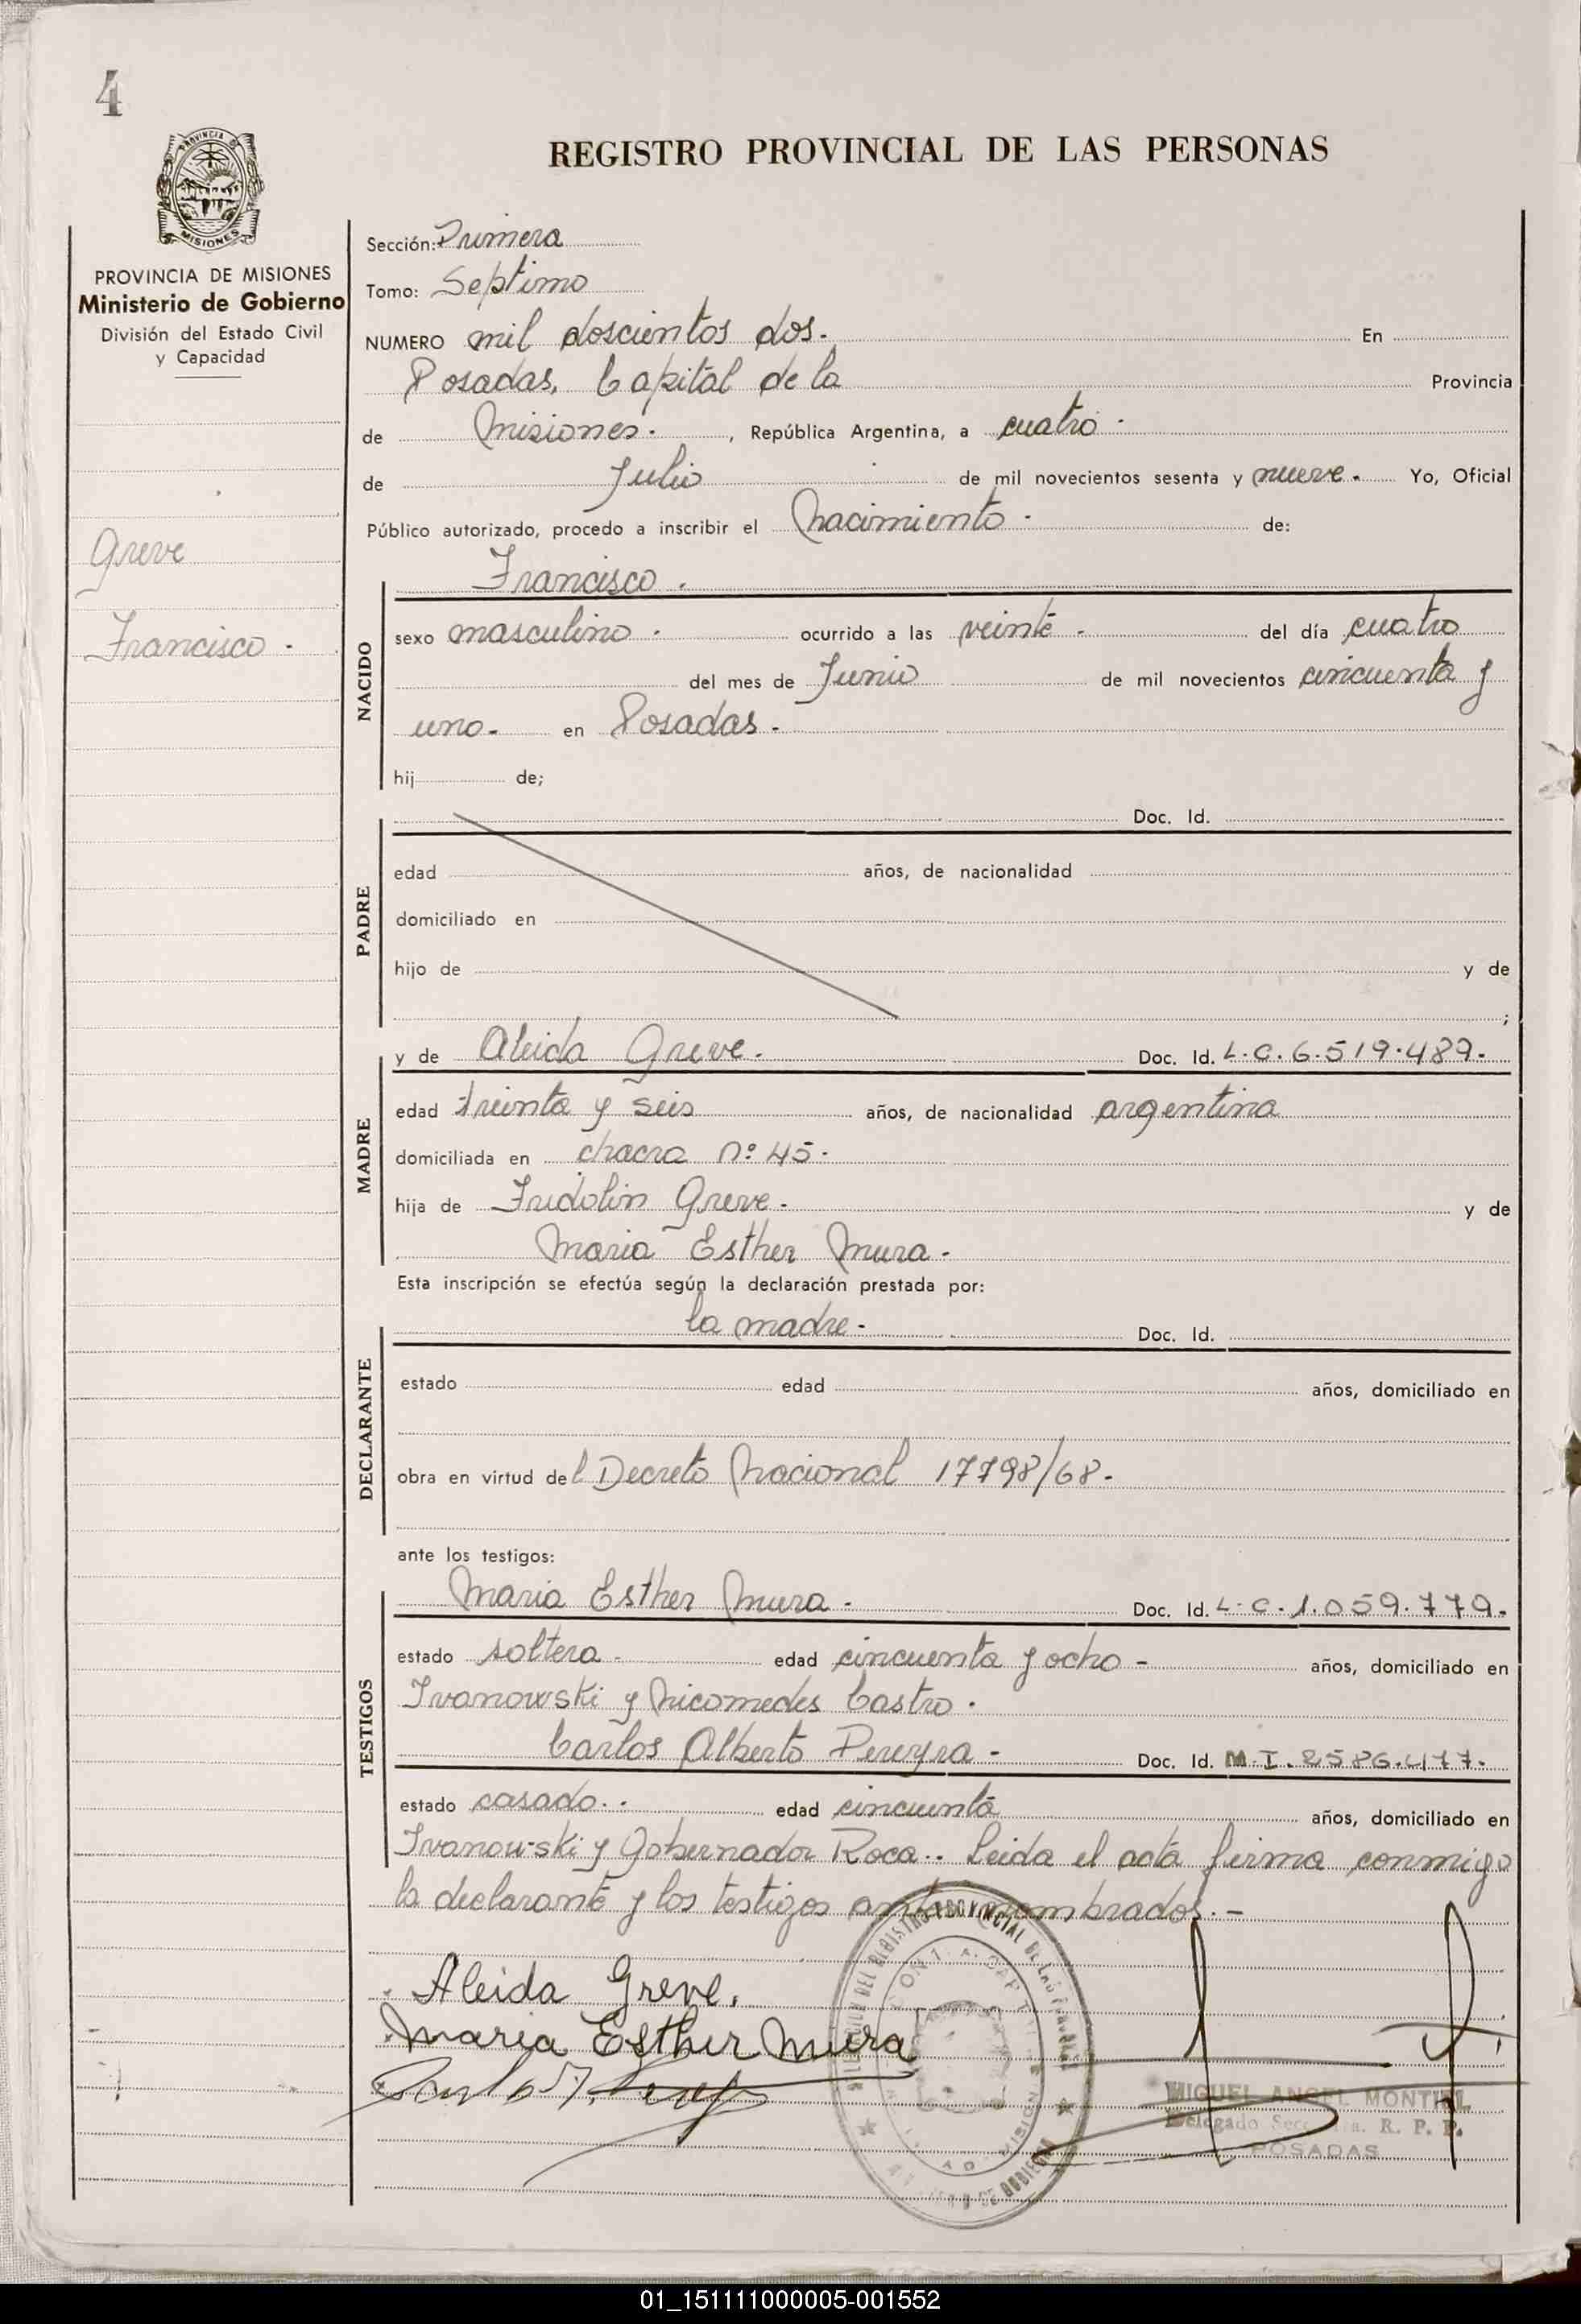 4
PROVINCIA DE
MISIONES
REGISTRO PROVINCIAL DE LAS PERSONAS
PROVINCIA DE MISIONES
Ministerio de Gobierno
División del Estado Civil
y Capacidad
Greve
Francisco -
Sección: Primera
Tomo: Septimo
NUMERO mil doscientos dos. En
Posadas, Capital de la Provincia
de Misiones. , República Argentina, a cuatro
de Julio de mil novecientos sesenta y nueve. Yo, Oficial
Público autorizado, procedo a inscribir el nacimiento. de:
NACIDO
Francisco.
sexo masculino. ocurrido a las veinte - del día cuatro
del mes de Junio de mil novecientos cincuenta y
uno. en Posadas.
hij de;
PADRE
Doc. Id.
edad años, de nacionalidad
domiciliado en
hijo de y de
;
MADRE
y de Aleida Greve. Doc. Id. L.C. 6.519.489.
edad treinta y seis años, de nacionalidad argentina
domiciliada en chacra nº 45.
hija de Fridolin Greve. y de
Maria Esther Mura.
Esta inscripción se efectúa según la declaración prestada por:
DECLARANTE
la madre. Doc. Id.
estado edad años, domiciliado en
obra en virtud del Decreto Nacional 17798/68.
ante los testigos:
TESTIGOS
Maria Esther Mura. Doc. Id. L.C. 1.059.779.
estado soltera. edad cincuenta y ocho - años, domiciliado en
Ivanowski y Nicomedes Castro.
Carlos Alberto Pereyra - Doc. Id. M.I. 2586.477.
estado casado.. edad cincuenta años, domiciliado en
Ivanowski y Gobernador Roca.. Leida el acta firma conmigo
la declarante y los testigos antes nombrados. -
Aleida Greve.
Maria Esther Mura
MIGUEL ANGEL MONTIEL
Delegado R. P. P.
POSADAS
01_151111000005-001552